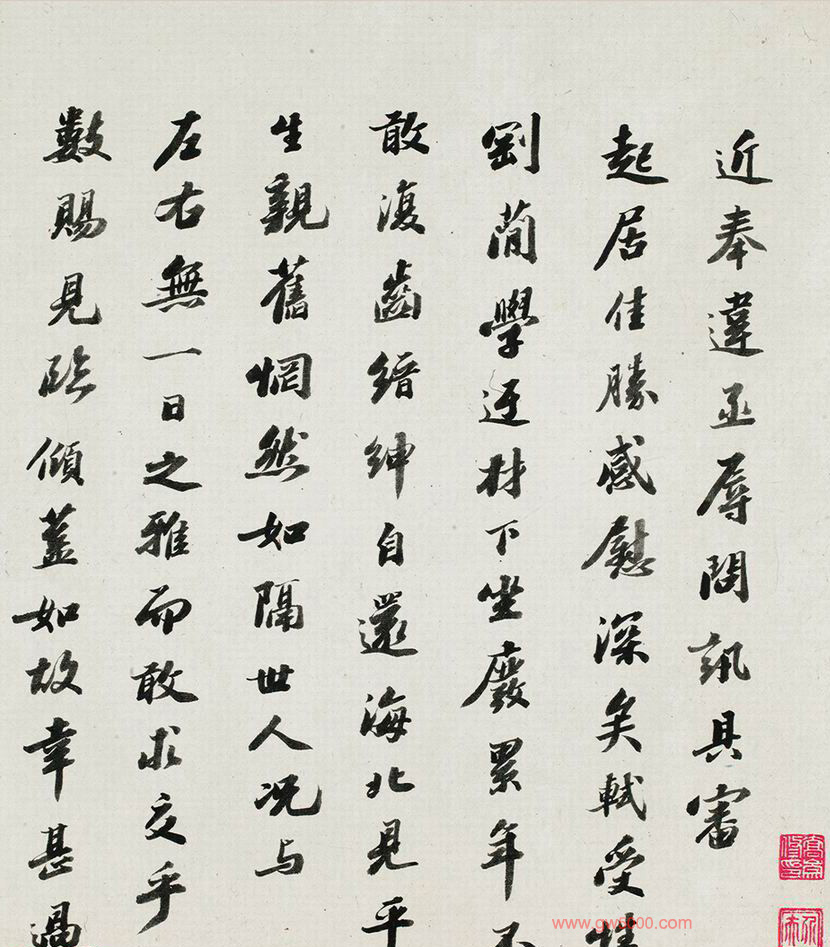 近奉違亟辱問訊具審
起居佳勝感慰深矣軾受性
剛簡學迂材下坐廢累年不
敢復齒縉紳自還海北見平
生親舊惘然如隔世人况与
左右無一日之雅而敢求交乎
數賜見臨傾蓋如故幸甚過
www.gw5100.com